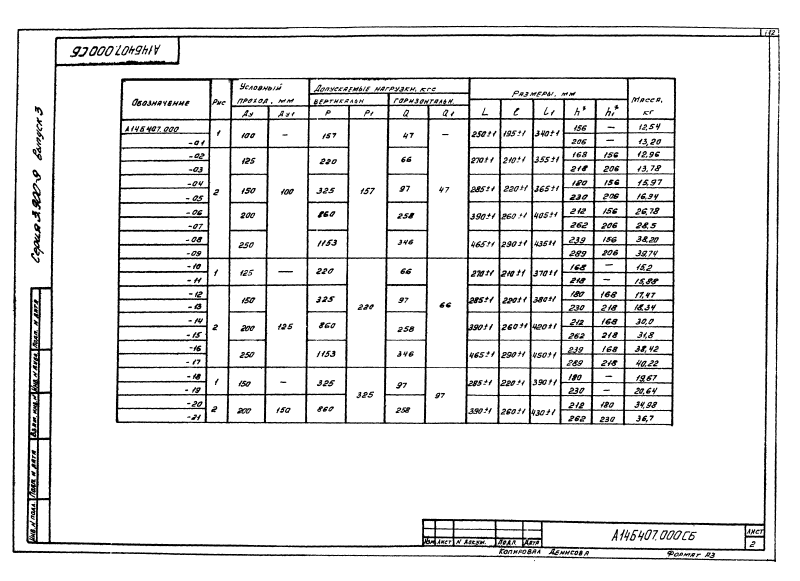 132
А14Б407.000 СБ
Серия 3.900-9 выпуск 3
Обозначение Рис Условный проход, мм Допускаемые нагрузки, кгс Размеры, мм Масса, кг
вертикальн горизонтальн.
Ду Ду1 P P1 Q Q1 L ℓ L1 h* h1*
А14Б407.000 1 100 — 157 157 47 47 250±1 195±1 340±1 156 — 12,54
-01 206 — 13,20
-02 2 125 100 220 66 270±1 210±1 355±1 168 156 12,96
-03 218 206 13,78
-04 150 325 97 285±1 220±1 365±1 180 156 15,97
-05 230 206 16,94
-06 200 860 258 390±1 260±1 405±1 212 156 26,78
-07 262 206 28,5
-08 250 1153 346 465±1 290±1 435±1 239 156 38,20
-09 289 206 39,74
-10 1 125 — 220 220 66 66 270±1 210±1 370±1 168 — 15,2
-11 218 — 15,88
-12 2 150 125 325 97 285±1 220±1 380±1 180 168 17,47
-13 230 218 18,34
-14 200 860 258 390±1 260±1 420±1 212 168 30,0
-15 262 218 31,8
-16 250 1153 346 465±1 290±1 450±1 239 168 38,42
-17 289 218 40,22
-18 1 150 — 325 325 97 97 285±1 220±1 390±1 180 — 19,67
-19 230 — 20,64
-20 2 200 150 860 258 390±1 260±1 430±1 212 180 34,98
-21 262 230 36,7
Инв. № подл. Подп. и дата Взам. инв. № Инв. № дубл. Подп. и дата
Изм Лист № докум. Подп. Дата
А14Б407.000 СБ
Лист
2
Копировал Денисова Формат А3